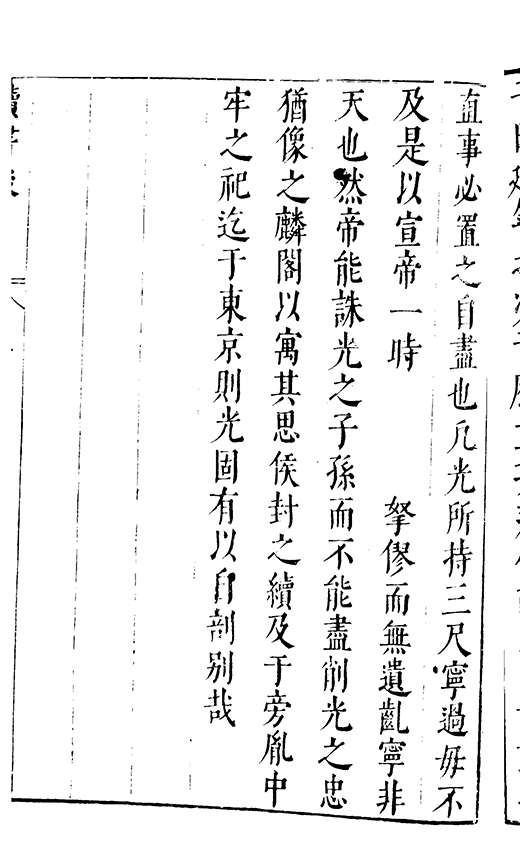 直事必置之自盡也凡光所持三尺寧過毋不
及是以宣帝一時　　　拏僇而無遺齓寧非
天也然帝能誅光之子孫而不能盡削光之忠
猶像之麟閣以寓其思侯封之續及于旁胤中
牢之祀迄于東京則光固有以自剖别哉